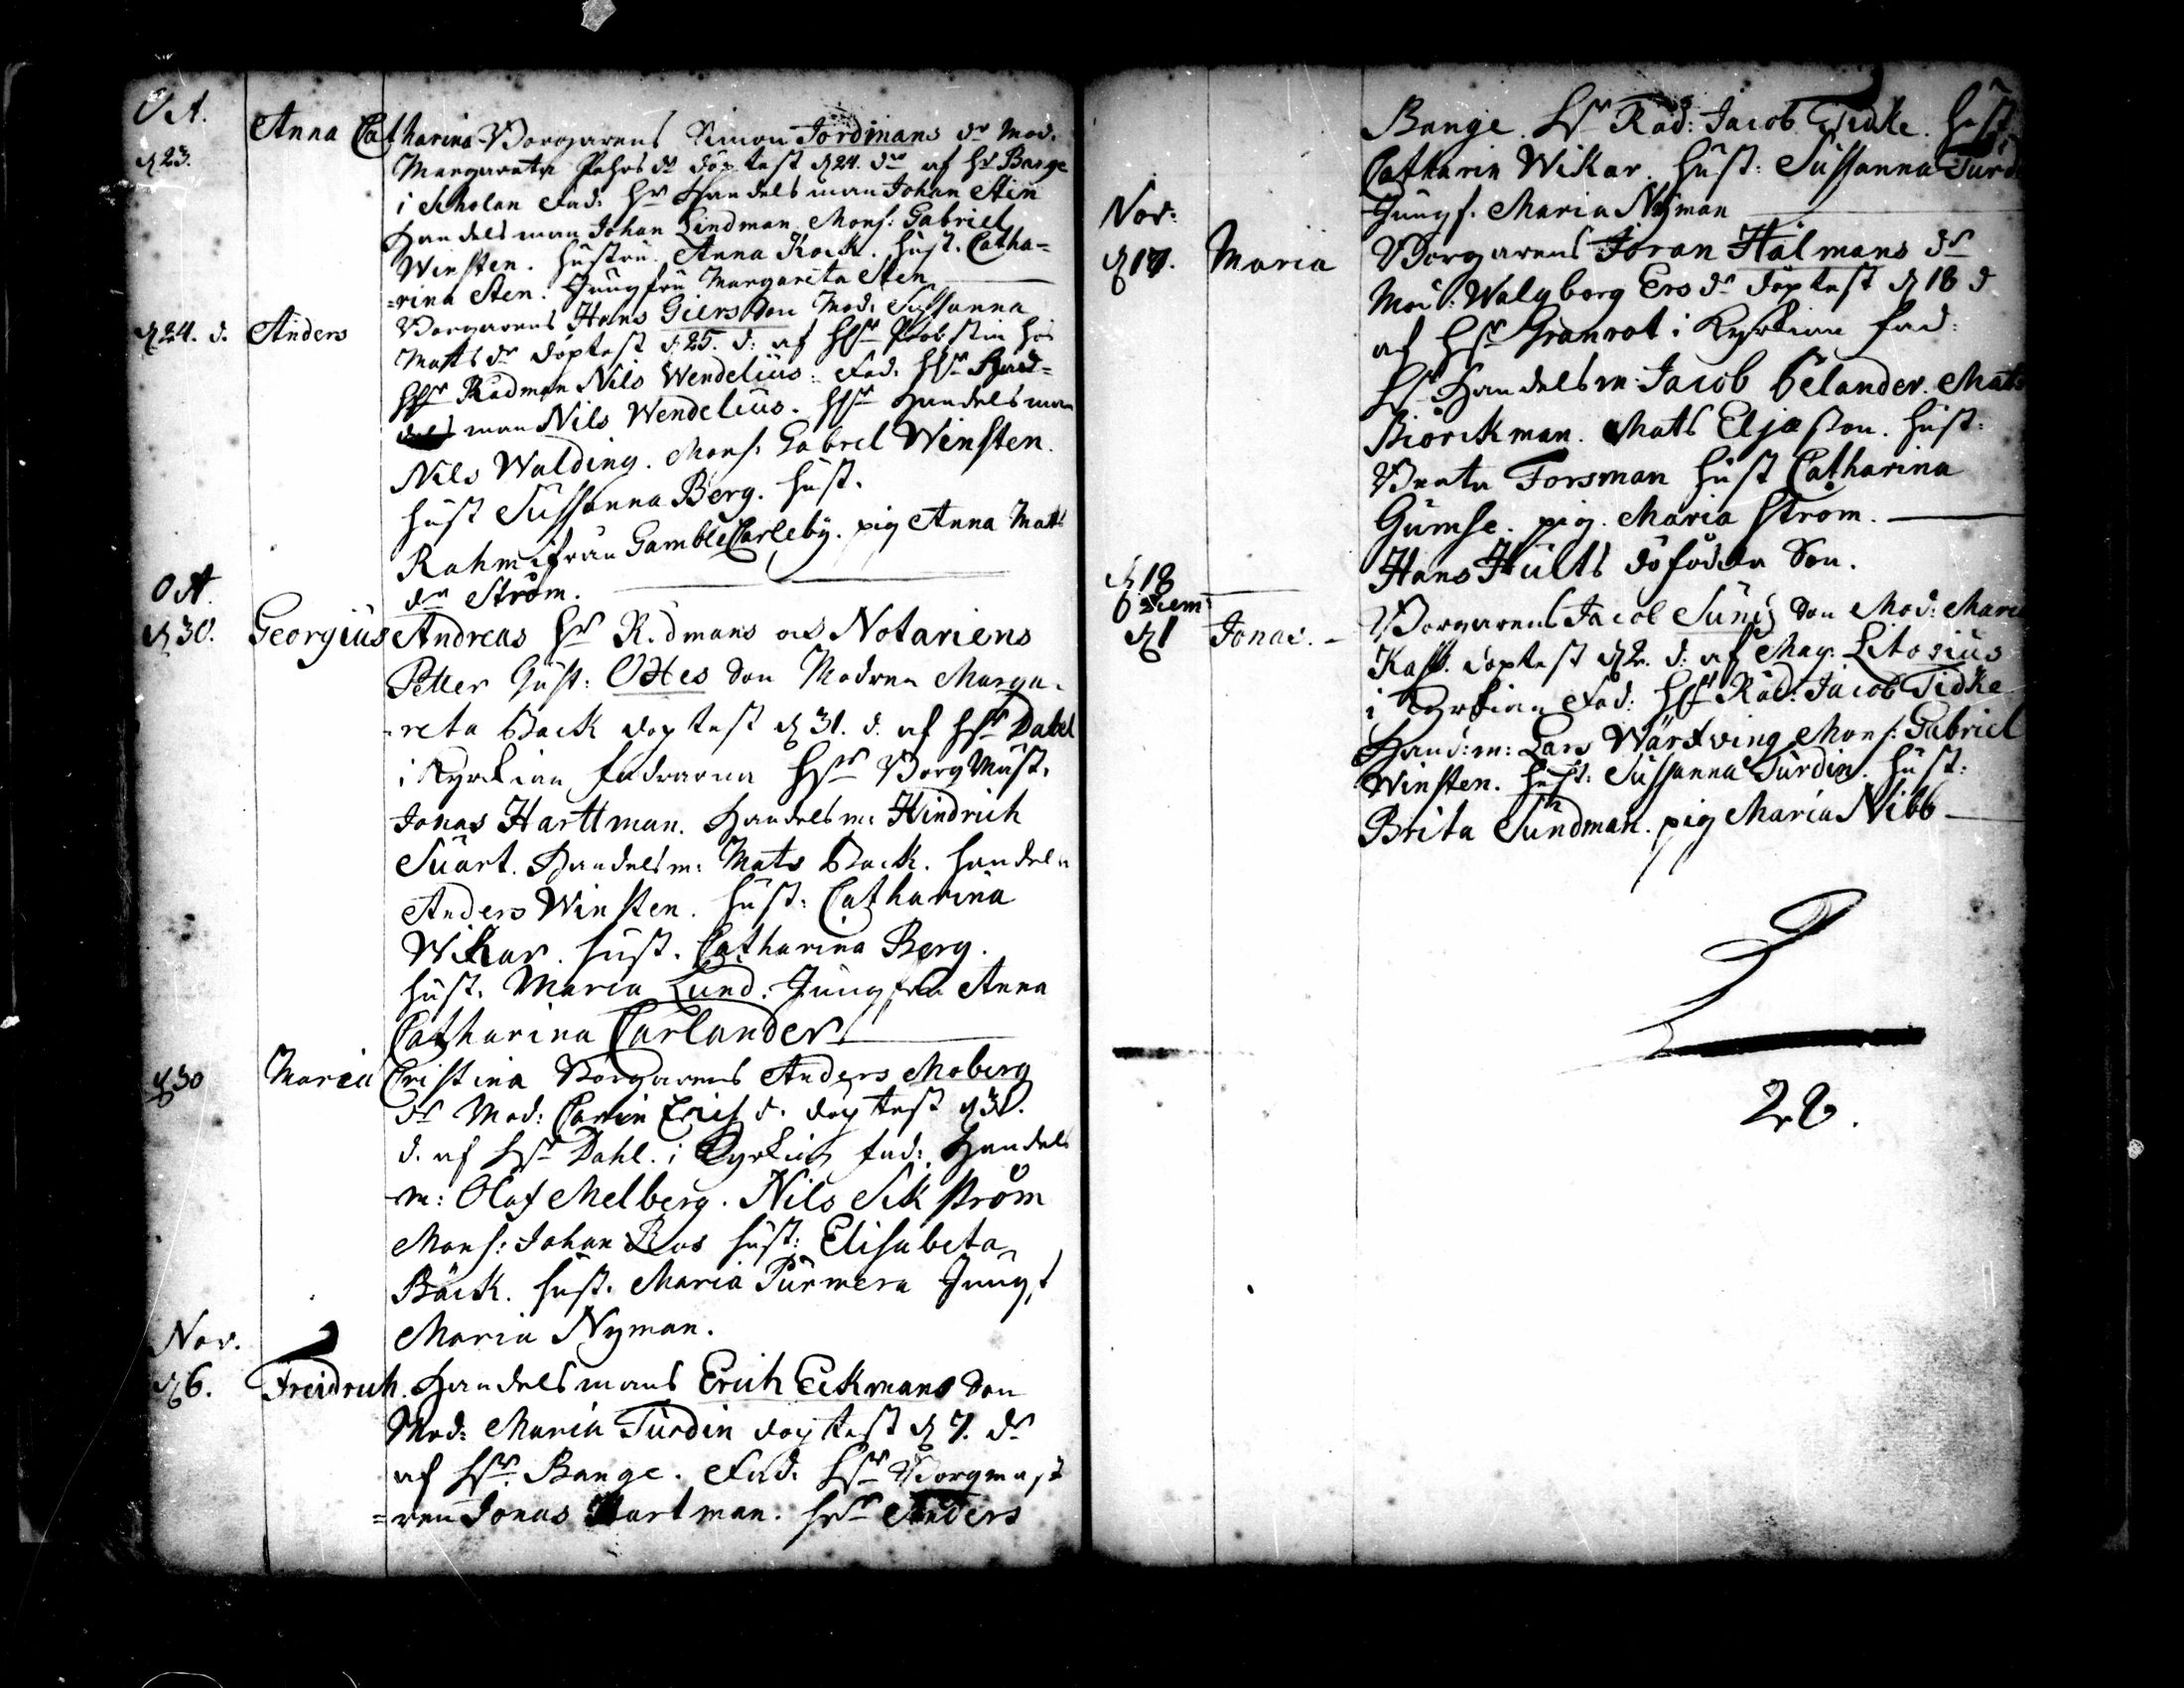 Oct.
d 23. Anna Catharina Borgarens Simon Jordmans dr Mod.
Margareta Pehrs dr döptest d 24. dns af Hr Bange
i Scholan Fad: Hr Handelsman Johan Stin
Handelsman Johan Lindman. Mons: Gabriel
Winsten. Hustru. Anna Kock. Hust. Catha=
=rina Sten. Jungfru Margareta Sten
d 24. d. Anders Borgarens Hans Giers son Mod. Sussanna
Matts dr döptest d. 25. d: af HHr Probstin hos
HHr Rådman Nils Wendelius: Fad. HHr Hand=
dels man Nils Wendelius. HHr Handelsman
Nils Walding. Mons: Gabrel Winsten.
Hust Sussanna Berg. Hust.
Rahm ifrån Gamble Carleby. pig Anna Matts
dr Ström.
Oct.
d 30. Georgius Andreas Hr Rådmans och Notariens
Petter Gust: Ottes son Modren Marga-
-reta Back döptest d 31. d. af HHr Dahl
i Kyrkian fadrarna HHr Borg Mäst.
Jonas Harttman. Handelsm: Hindrich
Suart. Handelsm: Mats Back. Handelsm
Anders Winsten. Hust: Catharina
Wikar. Hust. Catharina Berg.
Hust. Maria Lund. Jungfru Anna
Catharina Carlander
d 30 Maria Cristina Borgarens Anders Moberg
dr Mod: Carin Erichs d. döptest d 31.
d. af HHr Dahl. i Kyrkian fad: Handels
m: Olof Melberg. Nils Sikström
Mons: Johan Ros Hust: Elisabeta
Bäck. Hust. Maria Purmera Jungf
Maria Nyman.
Nov.
d 6. Freidrich. Handelsmans Erich Eckmans son
Mod: Maria Turdin döptest d 7. dr
af HHr Bange. Fad. HHr Borgmäst
=ren Jonas Hartman. HHr Anders
Bange. HHr Råd: Jacob Tidke. Hust
Catharin Wikar. Hust: Sussanna Turd
Jungf. Maria Nyman
Nov:
d 17. Maria Borgarens Jöran Hålmans dr
Mod: Walgborg Ers dr döptest d 18 d
af HHr Granrot i Kyrkian fad:
HHr Handelsm: Jacob Celander. Mats
Biörckman. Mats Eljæson. Hust:
Beata Forsman Hust Catharina
Gumse. pig. Maria Ström.
d 18 Hans Hults döfödda son.
Decem:
d 1 Jonas. Borgarens Jacob Sunds son Mod: Maria
Kass. döptest d 2. d: af Mag: Litovius
i Kyrkian Fad: HHr Råd: Jacob Tidke
Hand: m: Lars Wärfving Mons: Gabriel
Winsten. Hust: Sussanna Turdin. Hust:
Brita Sundman. pig Maria Nibb
28.